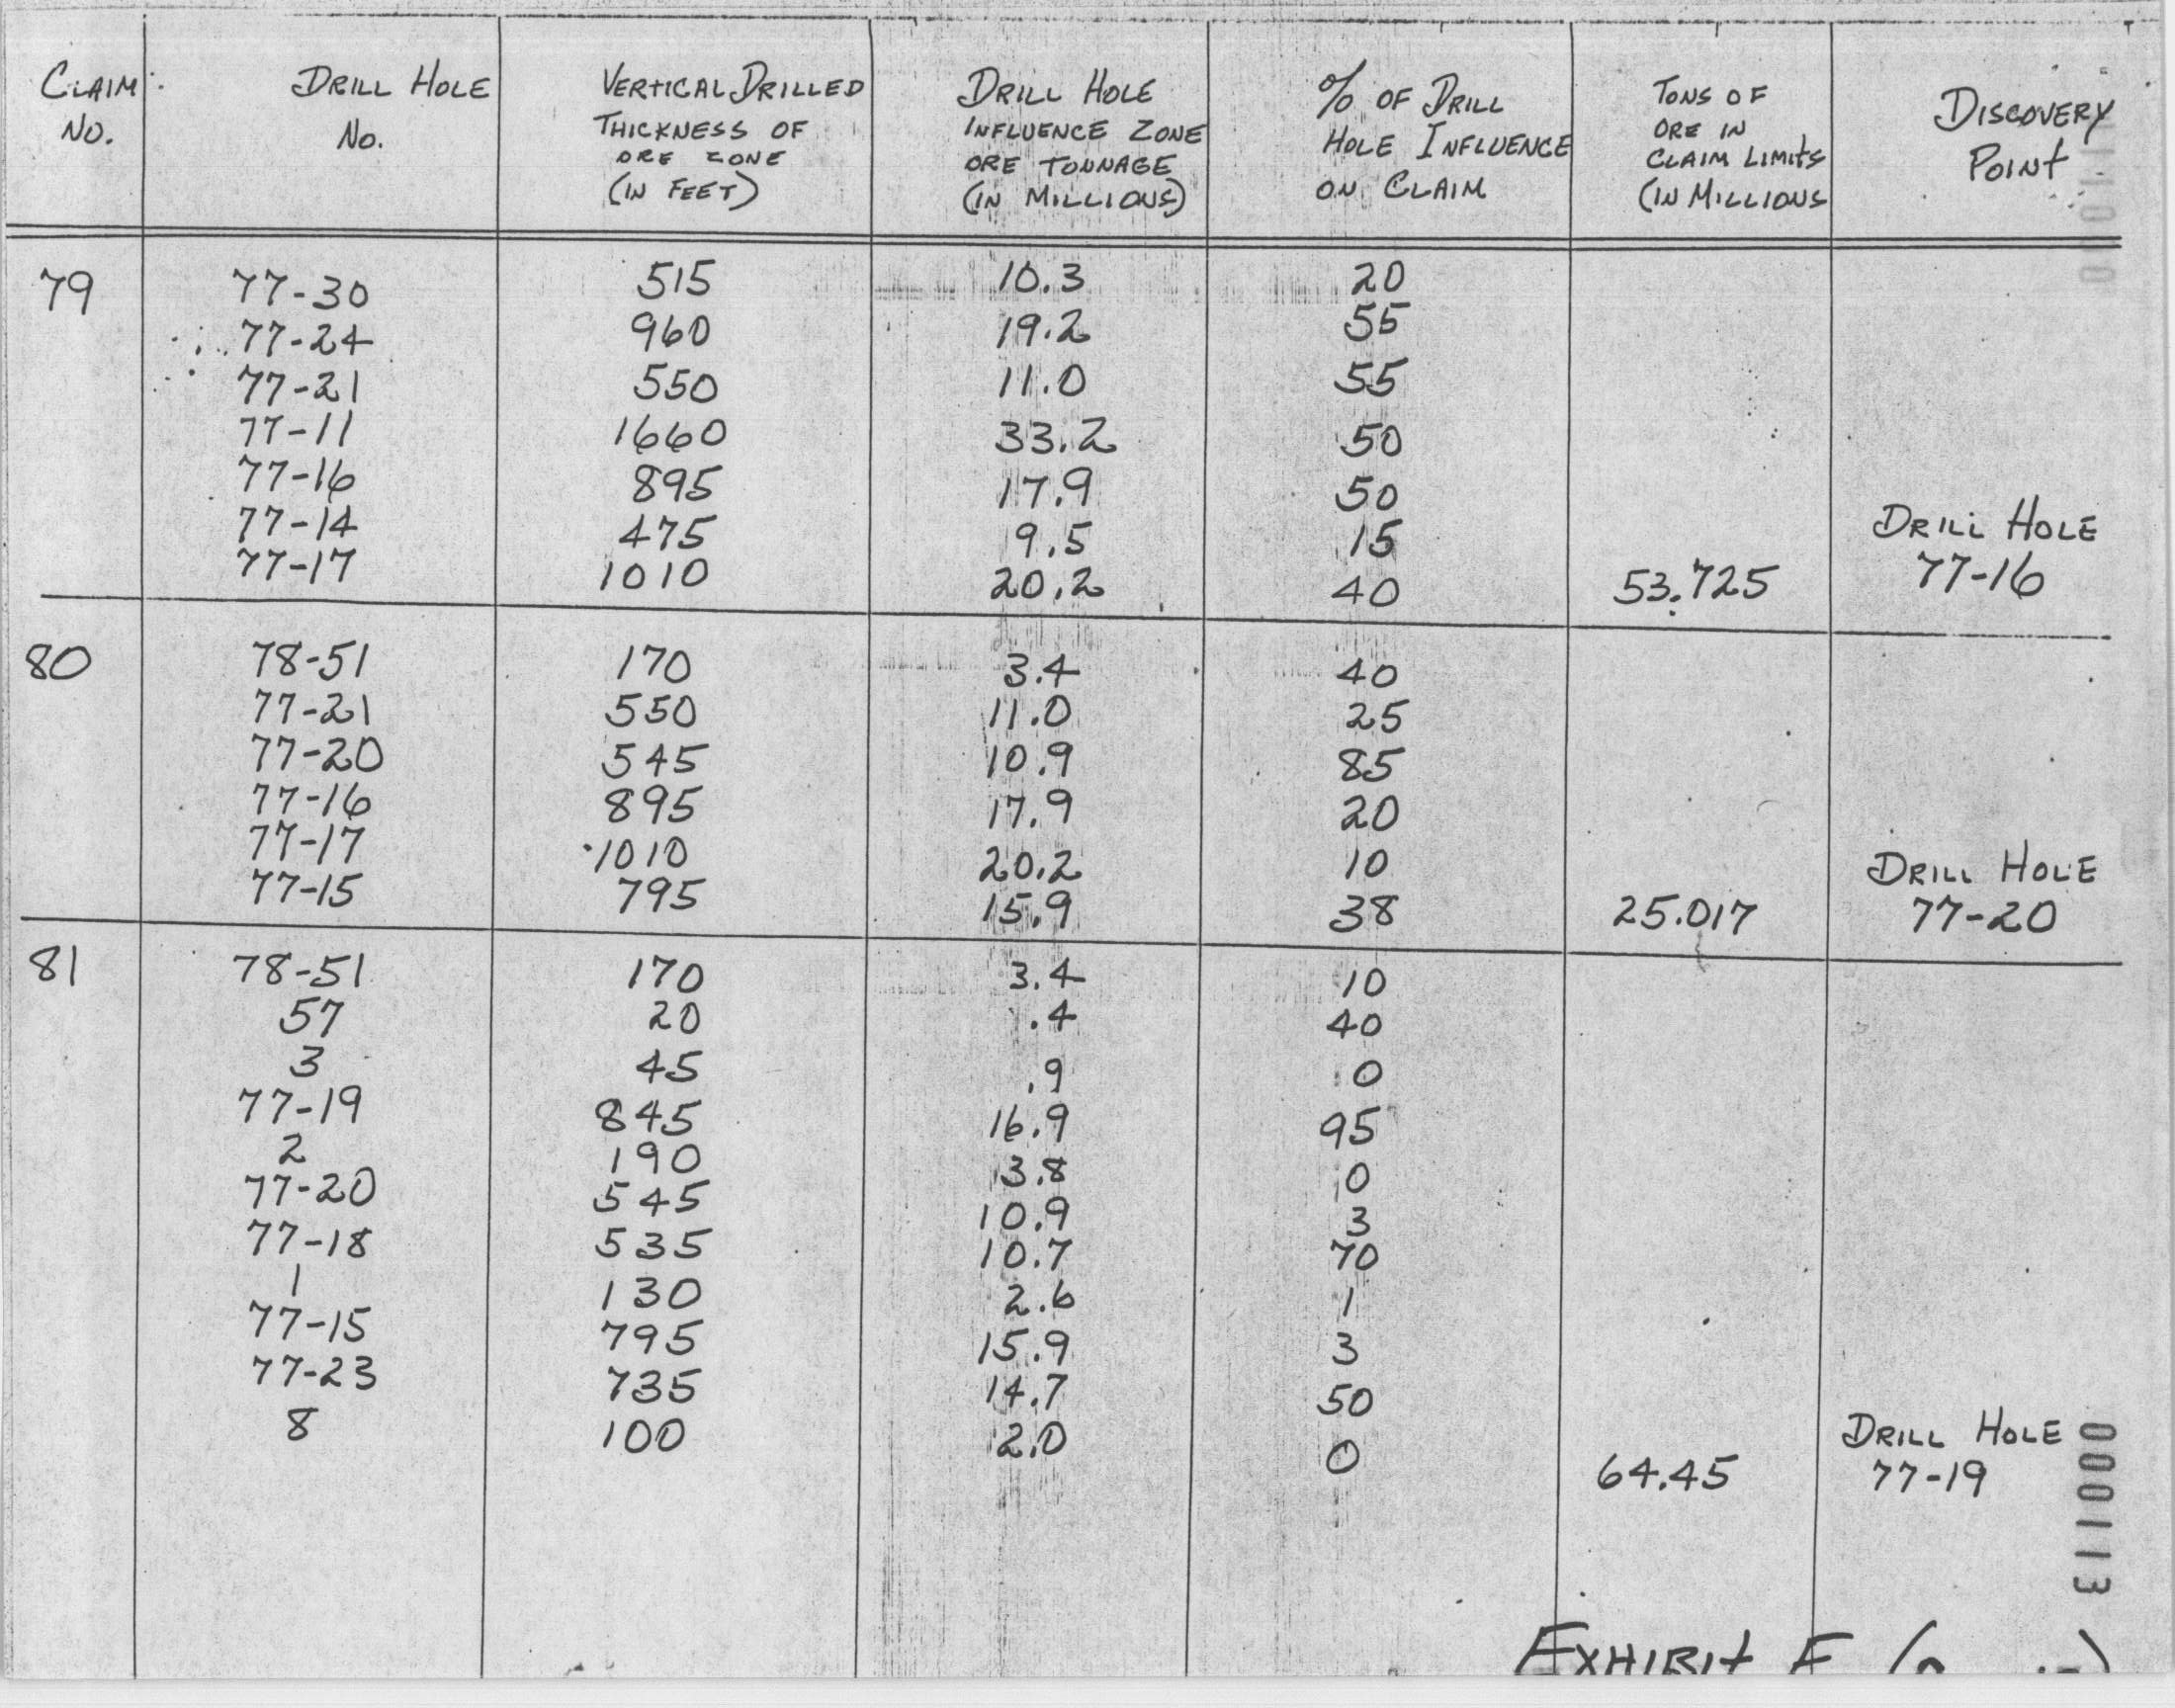 CLAIM NO. DRILL HOLE NO. VERTICAL DRILLED THICKNESS OF ORE ZONE (IN FEET) DRILL HOLE INFLUENCE ZONE ORE TONNAGE (IN MILLIONS) % OF DRILL HOLE INFLUENCE ON CLAIM TONS OF ORE IN CLAIM LIMITS (IN MILLIONS DISCOVERY POINT
79 77-30 515 10.3 20
77-24 960 19.2 55
77-21 550 11.0 55
77-11 1660 33.2 50
77-16 895 17.9 50
77-14 475 9.5 15 DRILL HOLE
77-17 1010 20.2 40 53.725 77-16
80 78-51 170 3.4 40
77-21 550 11.0 25
77-20 545 10.9 85
77-16 895 17.9 20
77-17 1010 20.2 10 DRILL HOLE
77-15 795 15.9 38 25.017 77-20
81 78-51 170 3.4 10
57 20 .4 40
3 45 .9 0
77-19 845 16.9 95
2 190 3.8 0
77-20 545 10.9 3
77-18 535 10.7 70
1 130 2.6 1
77-15 795 15.9 3
77-23 735 14.7 50
8 100 2.0 0 DRILL HOLE
64.45 77-19
000113
EXHIBIT